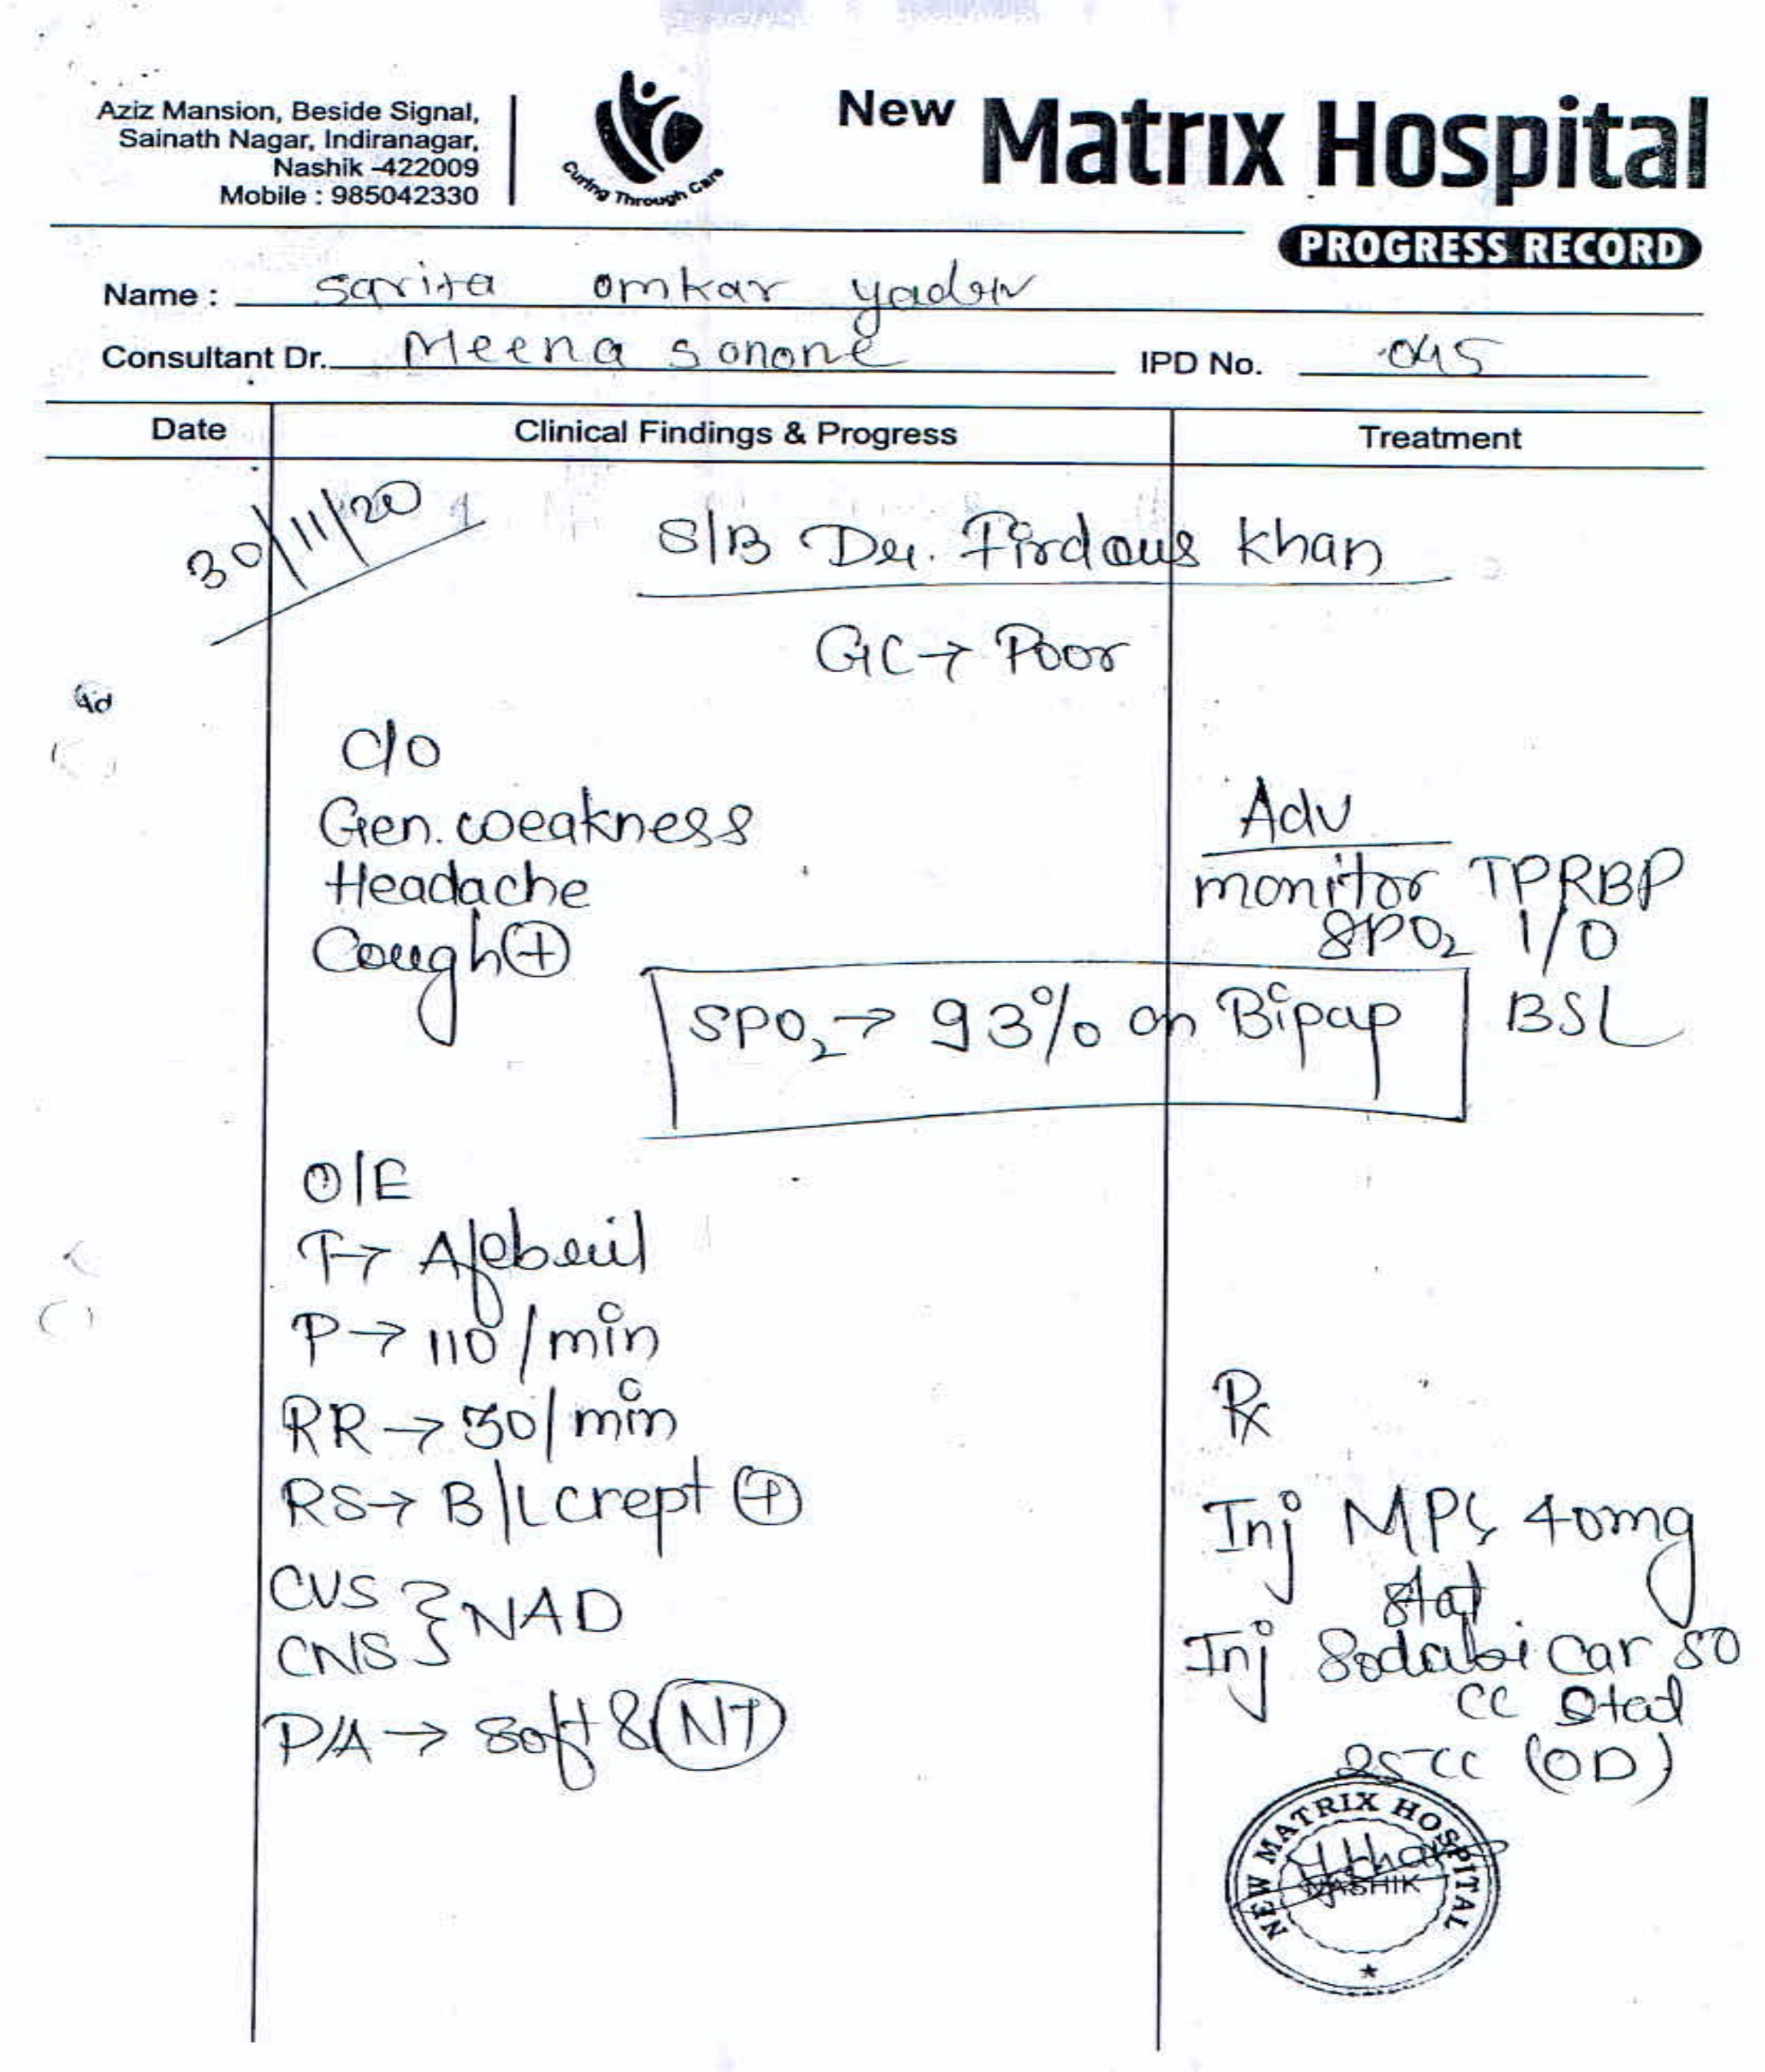 Aziz Mansion, Beside Signal,
Sainath Nagar, Indiranagar,
Nashik -422009
Mobile : 985042330
Curing Through Care
New Matrix Hospital
PROGRESS RECORD
Name : Sarita omkar yadav
Consultant Dr. Meena Sonone IPD No. 045
Date Clinical Findings & Progress Treatment
30/11/20
S/B Dr. Firdous Khan
GC → Poor
C/O
Gen. weakness
Headache
Cough ⊕
Adv
monitor TPRBP
SPO₂ I/O
BSL
SPO₂ → 93% on Bipap
O/E
T → Afebril
P → 110/min
RR → 30/min
RS → B/L crept ⊕
CVS } NAD
CNS
P/A → Soft & NT
Rx
Inj MPS 40mg
stat
Inj Sodabicar 50
cc Stat
25 cc (OD)
NEW MATRIX HOSPITAL
NASHIK